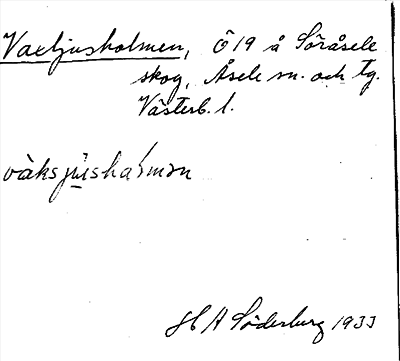 Vaxljusholmen, Ö 19 å Söråsele
skog, Åsele sn. och tg.
Västerb. l.
vàksjùshaɔmən
H A Söderberg 1933